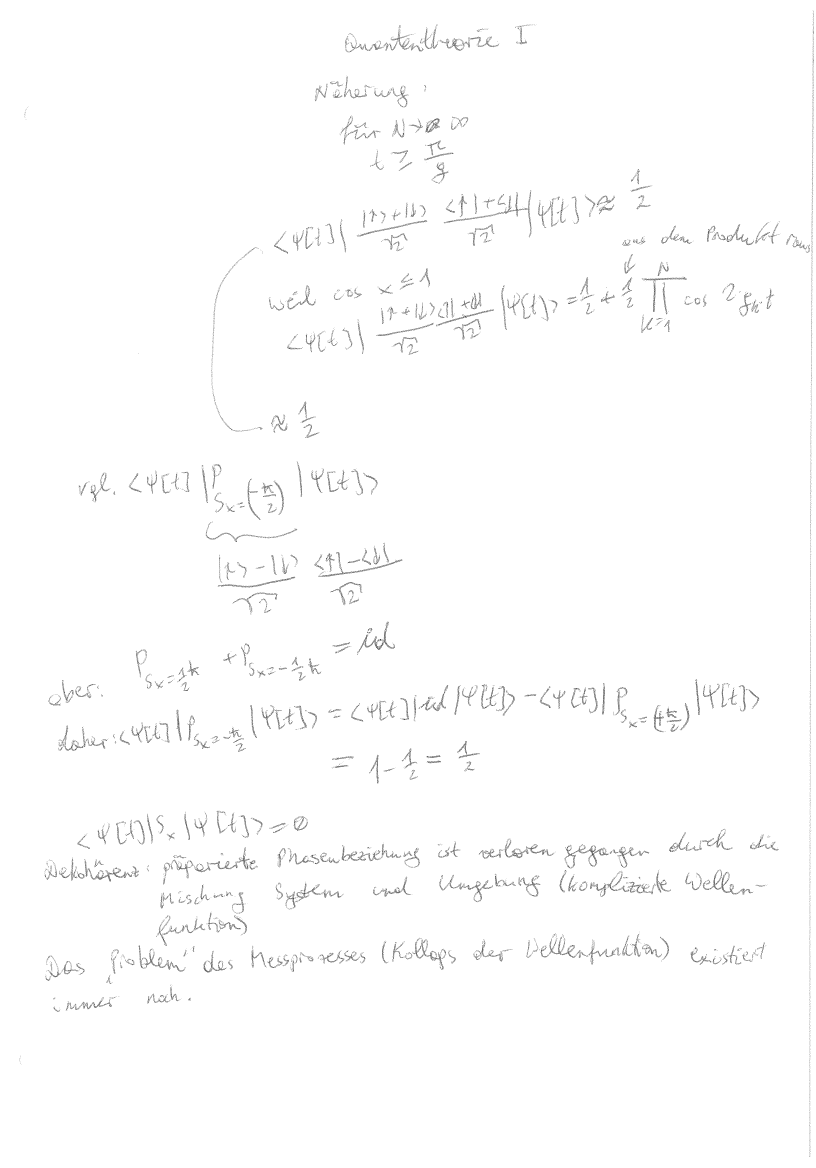 Quantentheorie I
Näherung:
für N → ∞
t ≥ π/g
⟨Ψ[t]| (|↑⟩+|↓⟩)/√2 (⟨↑|+⟨↓|)/√2 |Ψ[t]⟩ ≈ 1/2
aus dem Produkt raus
weil cos x ≤ 1
⟨Ψ[t]| (|↑+|↓⟩)/√2 (⟨↑|+⟨↓|)/√2 |Ψ[t]⟩ = 1/2 + 1/2 ∏_{k=1}^{N} cos 2·g_k·t
≈ 1/2
vgl. ⟨Ψ[t]|P_{S_x=(-ħ/2)}|Ψ[t]⟩
(|↑⟩-|↓⟩)/√2 (⟨↑|-⟨↓|)/√2
aber: P_{S_x=1/2ħ} + P_{S_x=-1/2ħ} = id
daher: ⟨Ψ[t]|P_{S_x=-ħ/2}|Ψ[t]⟩ = ⟨Ψ[t]|id|Ψ[t]⟩ - ⟨Ψ[t]|P_{S_x=(+ħ/2)}|Ψ[t]⟩
= 1 - 1/2 = 1/2
⟨Ψ[t]|S_x|Ψ[t]⟩ = 0
Dekohärenz: präparierte Phasenbeziehung ist verloren gegangen durch die
Mischung System und Umgebung (komplizierte Wellen-
funktion)
Das „Problem" des Messprozesses (Kollaps der Wellenfunktion) existiert
immer noch.